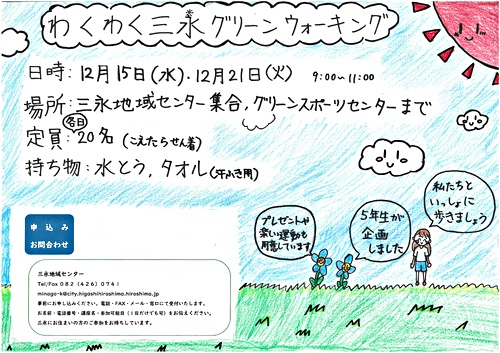 わくわく三永グリーンウォーキング
日時:12月15日(水)・12月21日(火) 9:00~11:00
場所:三永地域センター集合,グリーンスポーツセンターまで
定員:各日20名(こえたらせん着)
持ち物:水とう,タオル(汗ふき用)
私たちと
いっしょに
歩きましょう
5年生が
企画
しました
プレゼントや
楽しい運動も
用意しています
申込み
お問合わせ
三永地域センター
Tel/Fax 082(426)0741
minaga-k@city.higashihiroshima.hiroshima.jp
事前にお申し込みください。電話・FAX・メール・窓口にて受付いたします。
お名前・電話番号・講座名・参加可能日(1日だけでも可)をお伝えください。
三永にお住まいの方のご参加をお待ちしています。